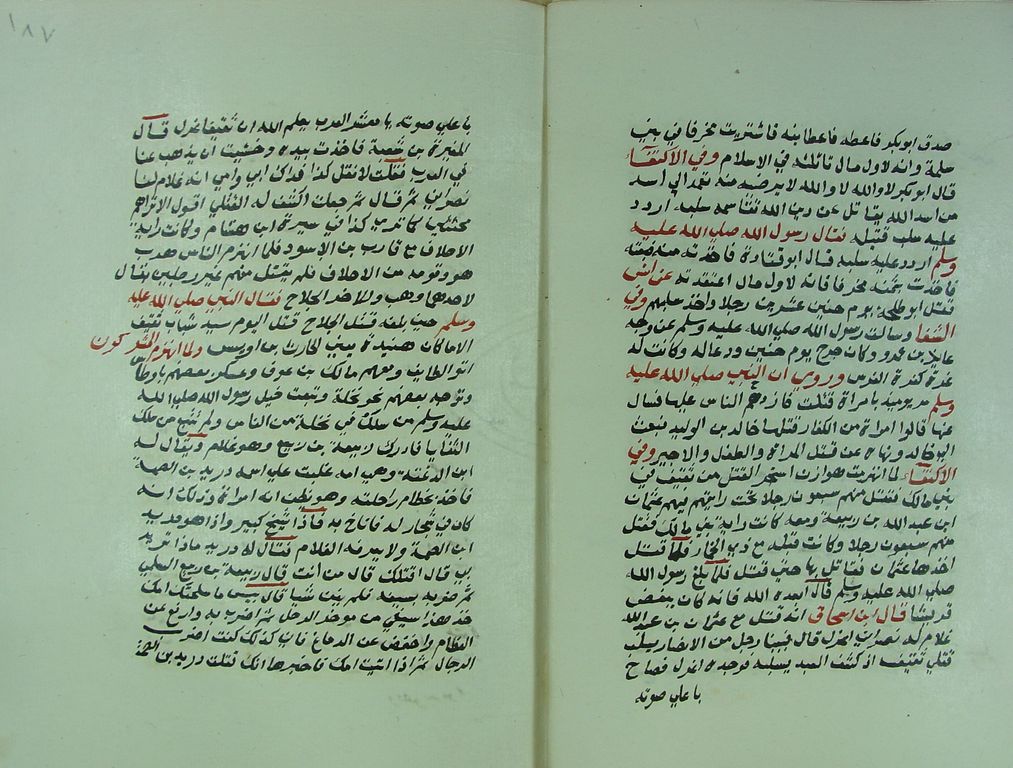 صدق ابوبكر فاعطه فاعطانيه فاشتريت مخرفا في بني
سلمة وانه لاول مال تاثلته في الاسلام وفي الاكتفاء
قال ابوبكر لا والله لا والله لا يرضيه منه تعمد الي اسد
من اسد الله يقاتل عن دين الله تقاسمه سلبه اردد
عليه سلب قتيله فقال رسول الله صلي الله عليه
وسلم اردد عليه سلبه قال ابوقتادة فاخذته منه فبعته
فاخذت بثمنه مخرفا فانه لاول مال اعتقدته عن انس
قتل ابوطلحة يوم حنين عشرين رجلا واخذ سلبهم وفي
الشفا وسالت رسول الله صلي الله عليه وسلم عن وجه
عايذ بن عمرو وكان جرح يوم حنين ودعا له وكانت له
غرة كغرة الفرس وروي ان النبي صلي الله عليه
وسلم مر يوميذ بامراة قتلت فازدحم الناس عليها فسال
عنها قالوا امراة من الكفار قتلها خالد بن الوليد فبعث
الي خالد ونهاه عن قتل المراة والطفل والاجير وفي
الاكتفاء لما انهزمت هوازن استحر القتل من ثقيف في
بني مالك فقتل منهم سبعون رجلا تحت رايتهم فيهم عثمان
ابن عبد الله بن ربيعة ومعه كانت راية بني مالك فقتل
منهم سبعون رجلا وكانت قبله مع ذي الخمار فلما قتل
اخذها عثمان فقاتل بها حتي قتل فلما بلغ رسول الله
صلي الله عليه وسلم قال ابعده الله فانه كان يبغض
قريشا قال ابن اسحاق انه قتل مع عثمان بن عبد الله
غلام له نصراني اغرل قال فبينا رجل من الانصار يسلب
قتلي ثقيف اذ كشف العبد يسلبه فوجده اغرل فصاح
باعلي صوته
١٨٧
باعلي صوته يا معشر العرب يعلم الله ان ثقيفا غرل قال
المغيرة بن شعبة فاخذت بيده وخشيت ان يذهب عنا
في العرب فقلت لا تقل كذا فداك ابي وامي انه غلام لنا
نصراني ثم قال ثم جعلت اكشف له القتلي اقول الا تراهم
مختتنين كما تري كذا في سيرة ابن هشام وكانت راية
الاحلاف مع قارب بن الاسود فلما انهزم الناس هرب
هو وقومه من الاحلاف فلم يقتل منهم غير رجلين يقال
لاحدهما وهب وللاخر الجلاح فقال النبي صلي الله عليه
وسلم حين بلغه قتل الجلاح قتل اليوم سيد شباب ثقيف
الا ما كان هنيدة يعني الحارث بن اويس ولما انهزم المشركون
اتوا الطايف ومعهم مالك بن عوف وعسكر بعضهم باوطاس
وتوجه بعضهم نحو نخلة وتبعت خيل رسول الله صلي الله
عليه وسلم من سلك في نخلة من الناس ولم تتبع من سلك
الثنايا فادرك ربيعة بن رفيع وهو غلام ويقال له
ابن الدغنة وهي امه غلبت علي اسمه دريد بن الصمة
فاخذ بخطام راحلته وهو يظن انه امراة وذلك انه
كان في شجار له فاناخ به فاذا شيخ كبير واذا هو دريد
ابن الصمة ولا يعرفه الغلام فقال له دريد ماذا تريد
بي قال اقتلك قال من انت قال ربيعة بن رفيع السلمي
ثم ضربه بسيفه فلم يغن شيا قال بيس ما سلحتك امك
خذ هذا سيفي من موخر الرحل ثم اضرب به وارفع عن
العظام واخفض عن الدماغ فاني كذلك كنت اضرب
الرجال ثم اذا اتيت امك فاخبرها انك قتلت دريد بن الصمة